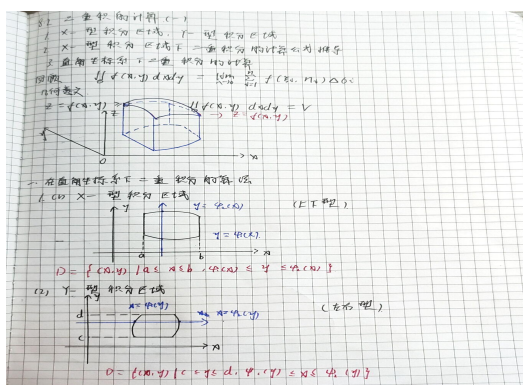 §2 二重积的计算(一)
1 X-型积分区域,Y-型积分区域
2 X-型积分区域下二重积分的计算公式推导
3 直角坐标系下二重积分的计算
回顾 ∬ f(x,y) dxdy = lim λ→0 Σ i=1 n f(ξi, ηi) Δσi
几何意义
z = f(x,y) ≥ ∬ f(x,y) dxdy = V
z → z = f(x,y)
y
0 x
一、在直角坐标系下二重积分的算法
1. (1) X-型积分区域 (上下型)
y y = φ2(x)
y = φ1(x)
a b x
D = { (x,y) | a ≤ x ≤ b, φ1(x) ≤ y ≤ φ2(x) }
(2) Y-型积分区域 (左右型)
y x = ψ1(y)
d x = ψ2(y)
c
x
D = { (x,y) | c ≤ y ≤ d, ψ1(y) ≤ x ≤ ψ2(y) }